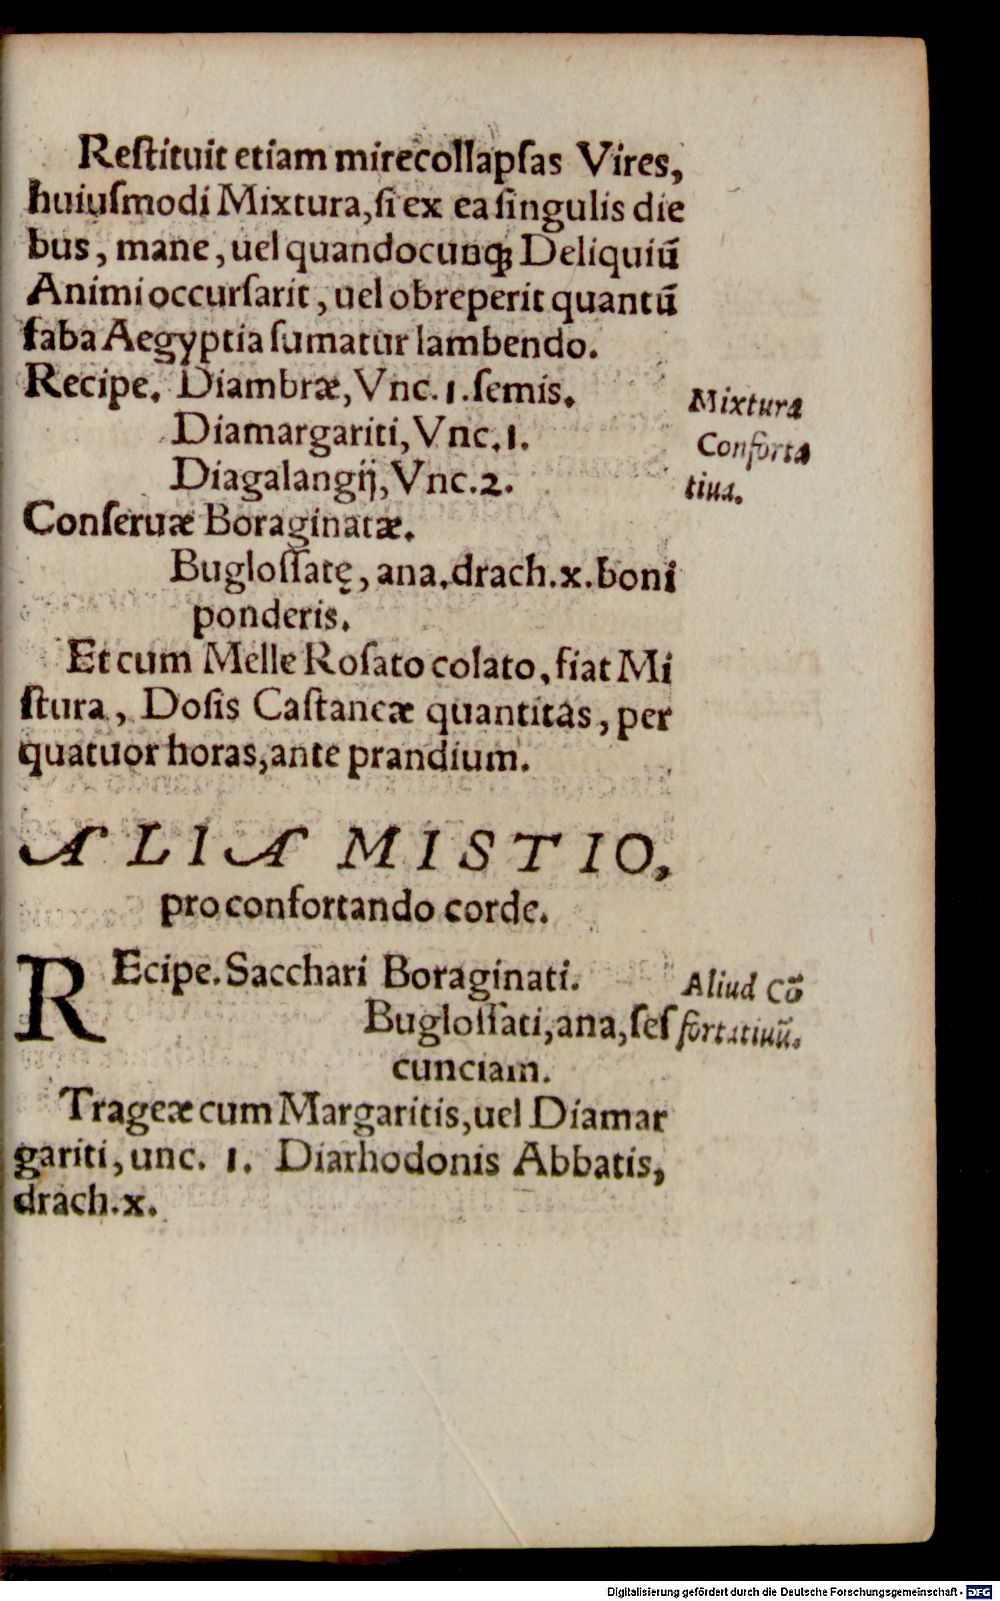 Reſtituit etiam mirecollapſas Vires,
huiuſmodi Mixtura, ſi ex ea ſingulis die
bus, mane, uel quandocunqꝫ Deliquiū
Animi occurſarit, uel obreperit quantū
faba Aegyptia ſumatur lambendo.
Recipe. Diambræ, Vnc. 1. ſemis.
Mixtura
Diamargariti, Vnc. 1.
Conforta
Diagalangij, Vnc. 2.
tiua.
Conſeruæ Boraginatæ.
Bugloſſatę, ana. drach. x. boni
ponderis.
Et cum Melle Roſato colato, fiat Mi
ſtura, Doſis Caſtaneæ quantitas, per
quatuor horas, ante prandium.
ALIA MISTIO,
pro confortando corde.
REcipe. Sacchari Boraginati.
Aliud Cō
Bugloſſati, ana, ſeſ
fortatiuū.
cunciam.
Trageæ cum Margaritis, uel Diamar
gariti, unc. 1. Diarhodonis Abbatis,
drach. x.
Digitalisierung gefördert durch die Deutsche Forschungsgemeinschaft - DFG